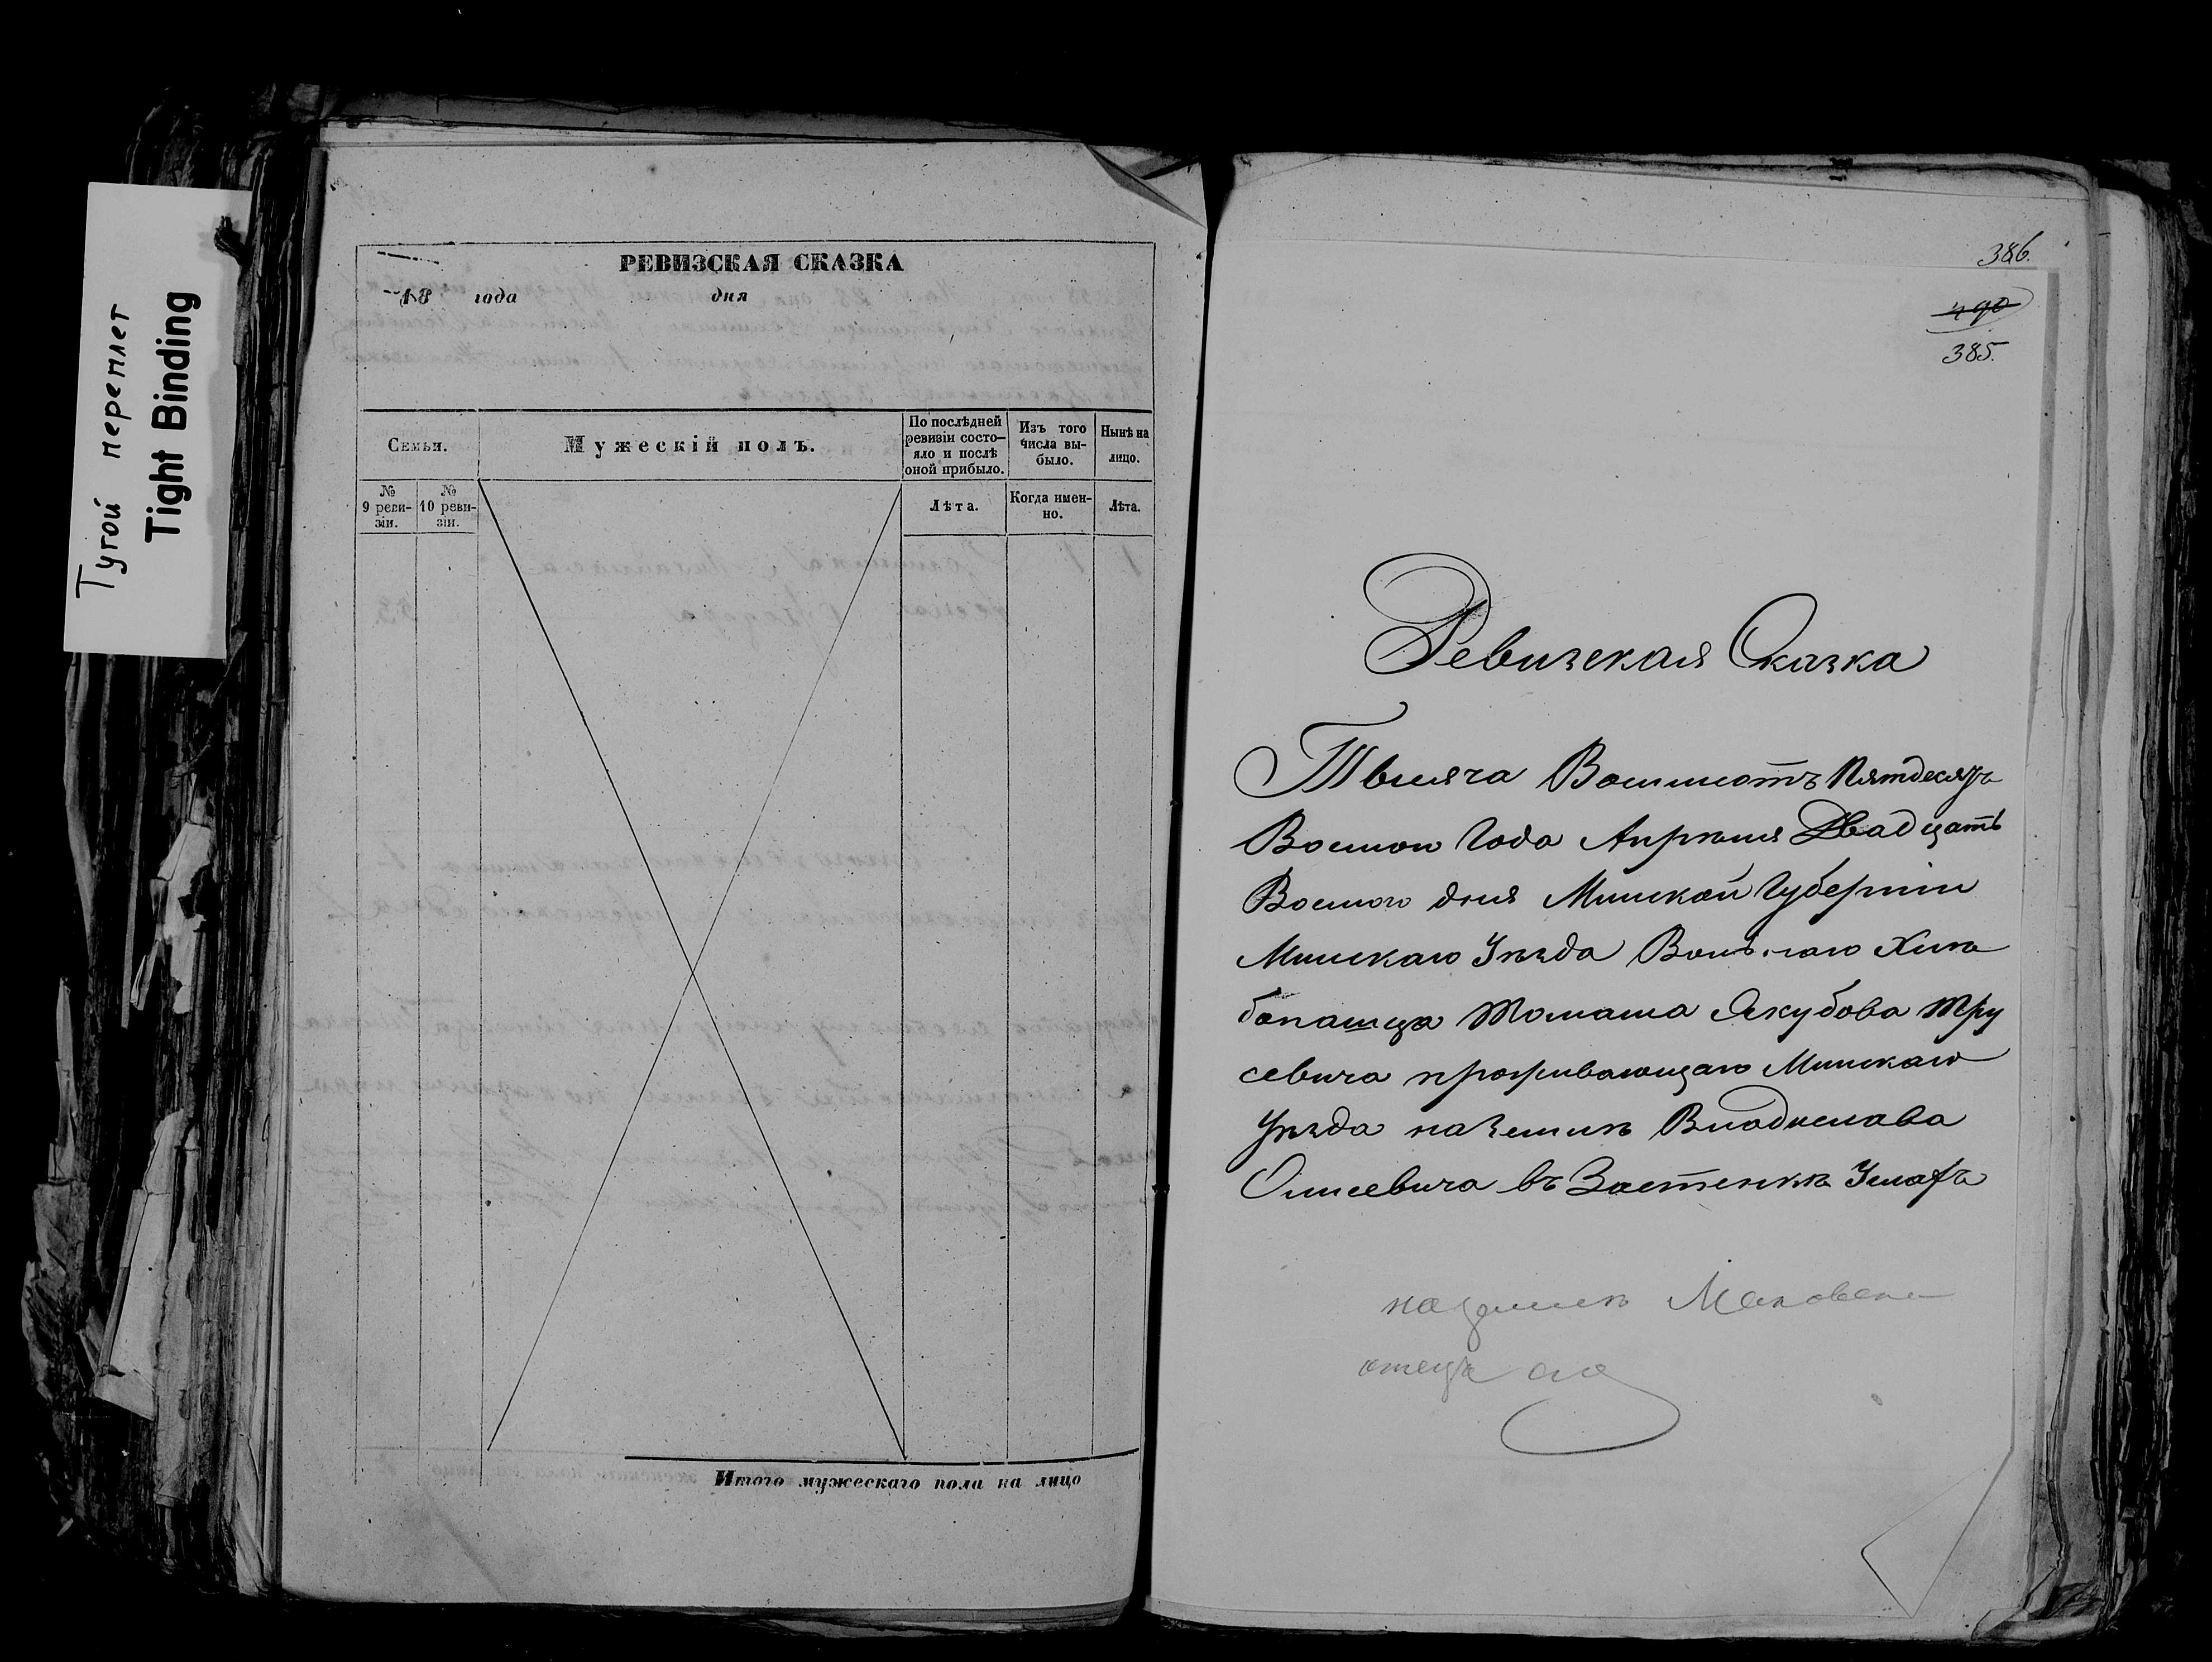 Тугой переплет
Tight Binding
РЕВИЗСКАЯ СКАЗКА
18 года дня
Семьи.
Мужескій полъ.
По послѣдней ревизіи состо-
яло и послѣ оной прибыло.
Изъ того числа вы-
было.
Нынѣ на лицо.
№ 9 реви-
зіи.
№ 10 реви-
зіи.
Лѣта.
Когда имен-
но.
Лѣта.
Итого мужескаго пола на лицо
386.
490
385.
Ревизская Сказка
Тысяча Восимсотъ Пятдесятъ
Восмои Года Апрѣля Двадцать
Восмого дня Минской Губерніи
Минскаго Уѣзда Вольнаго Хлѣ
бопашца Томаша Якубова Тру
севича проживающаго Минскаго
Уѣзда на Земли Владислава
Олисевича въ Застенкѣ
на земли
отецъ его